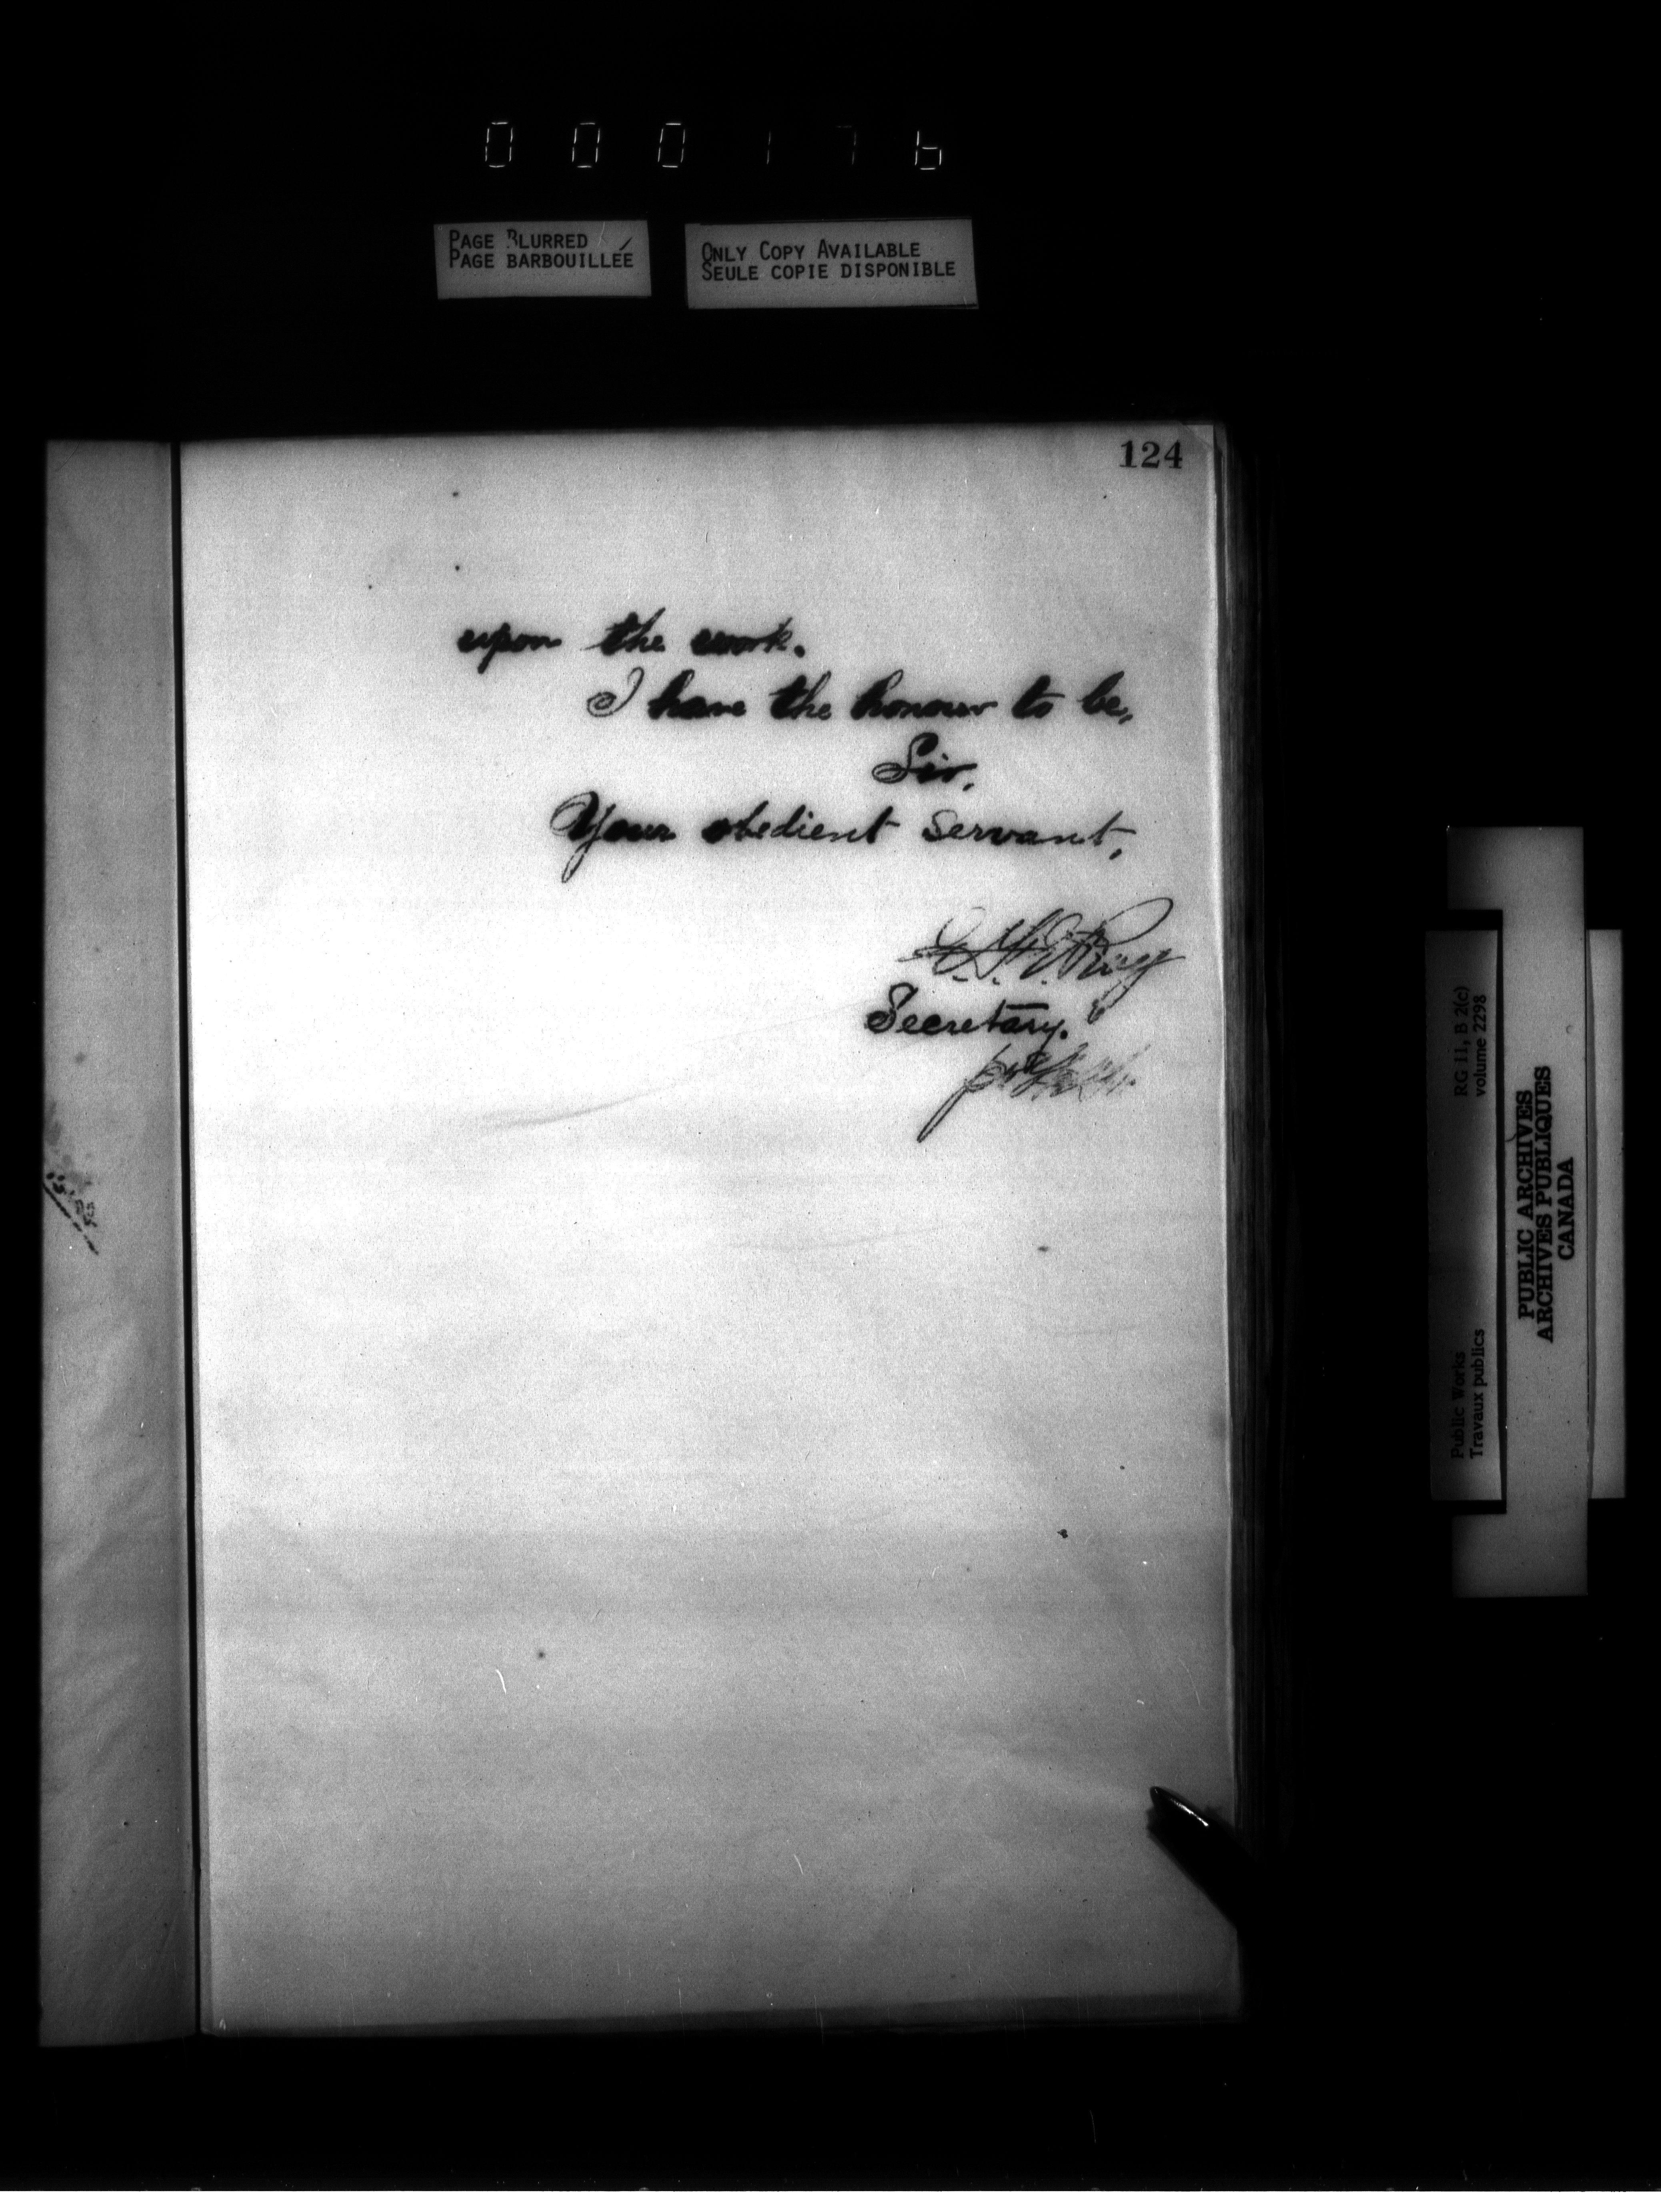 000176
PAGE BLURRED
PAGE BARBOUILLÉE
ONLY COPY AVAILABLE
SEULE COPIE DISPONIBLE
124
upon the work.
I have the honour to be,
Sir,
Your obedient servant,
Secretary.
RG 11, B 2(c)
volume 2298
Public Works
Travaux publics
PUBLIC ARCHIVES
ARCHIVES PUBLIQUES
CANADA